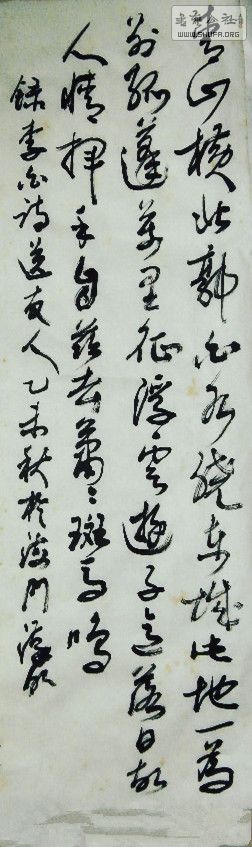 青山横北郭白水绕东城此地一为
别孤蓬万里征浮云游子意落日故
人情挥手自兹去萧〻班马鸣
录李白诗送友人乙未秋於海门
书艺公社
WWW.SHUFA.ORG